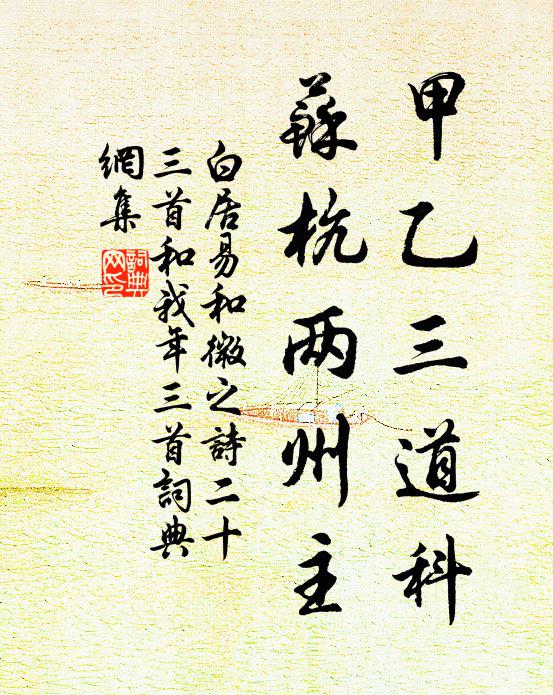 甲乙三道科
蘇杭两州主
白居易和微之詩二十
三首和我年三首詞典
網集
詞典
网印